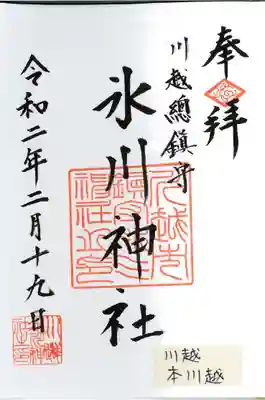 奉拝
川越總鎮守
氷川神社
令和二年二月十九日
川越
本川越